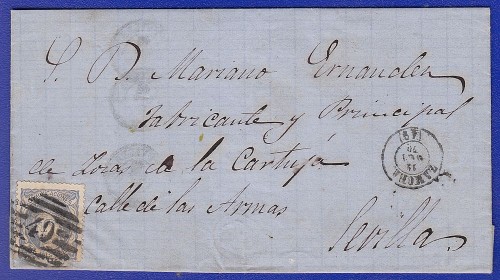 S. D. Mariano Ernandez
Fabricante y Principal
de Lozas de la Cartuja
calle de las Armas
Sevilla
ZAMORA
70
(49)
49